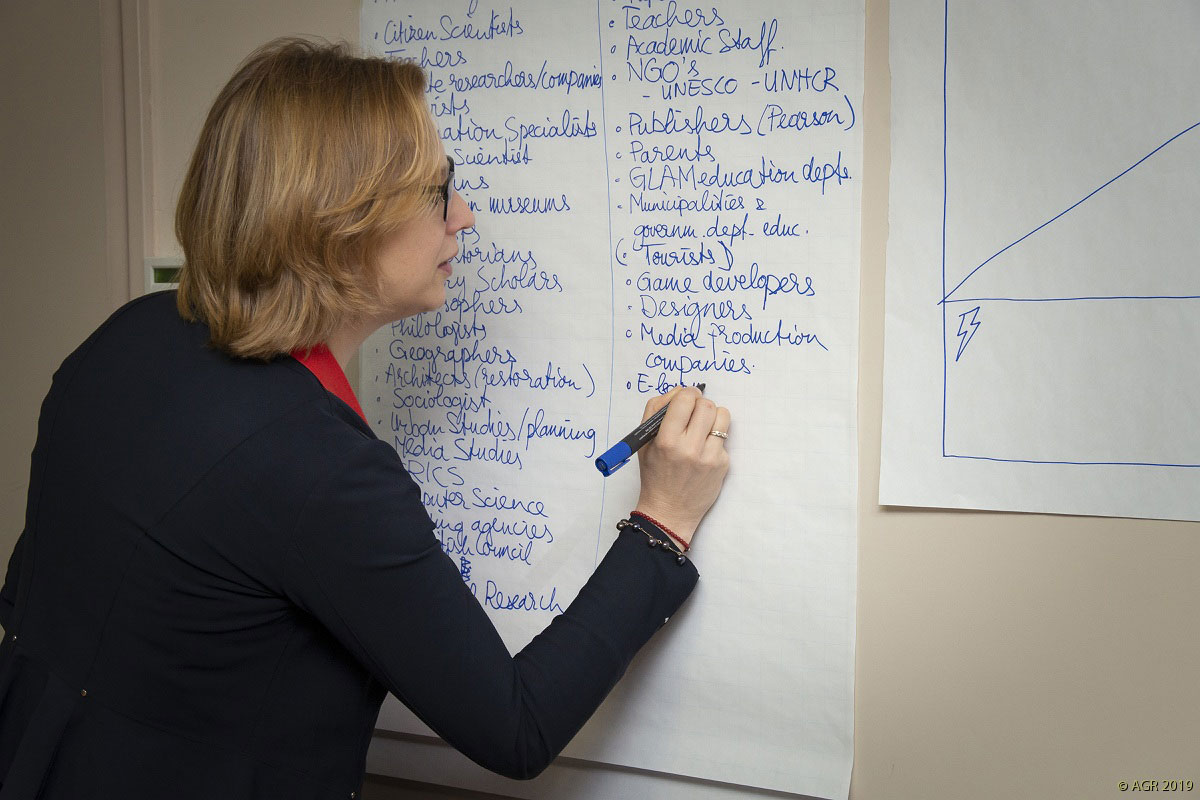 • Citizen Scientists
Teachers
researchers/companies
Specialists
Scientist
in museums
Scholars
Philologists
• Geographers
• Architects (restoration)
• Sociologist
• Urban Studies/planning
Media Studies
RICS
Science
agencies
Council
Research
• Teachers
• Academic Staff.
• NGO's
- UNESCO - UNHCR
• Publishers (Pearson)
• Parents
• GLAM education depts.
• Municipalities &
governm. dept. educ.
(• Tourists)
• Game developers
• Designers
• Media production
companies.
• E-learn
© AGR 2019